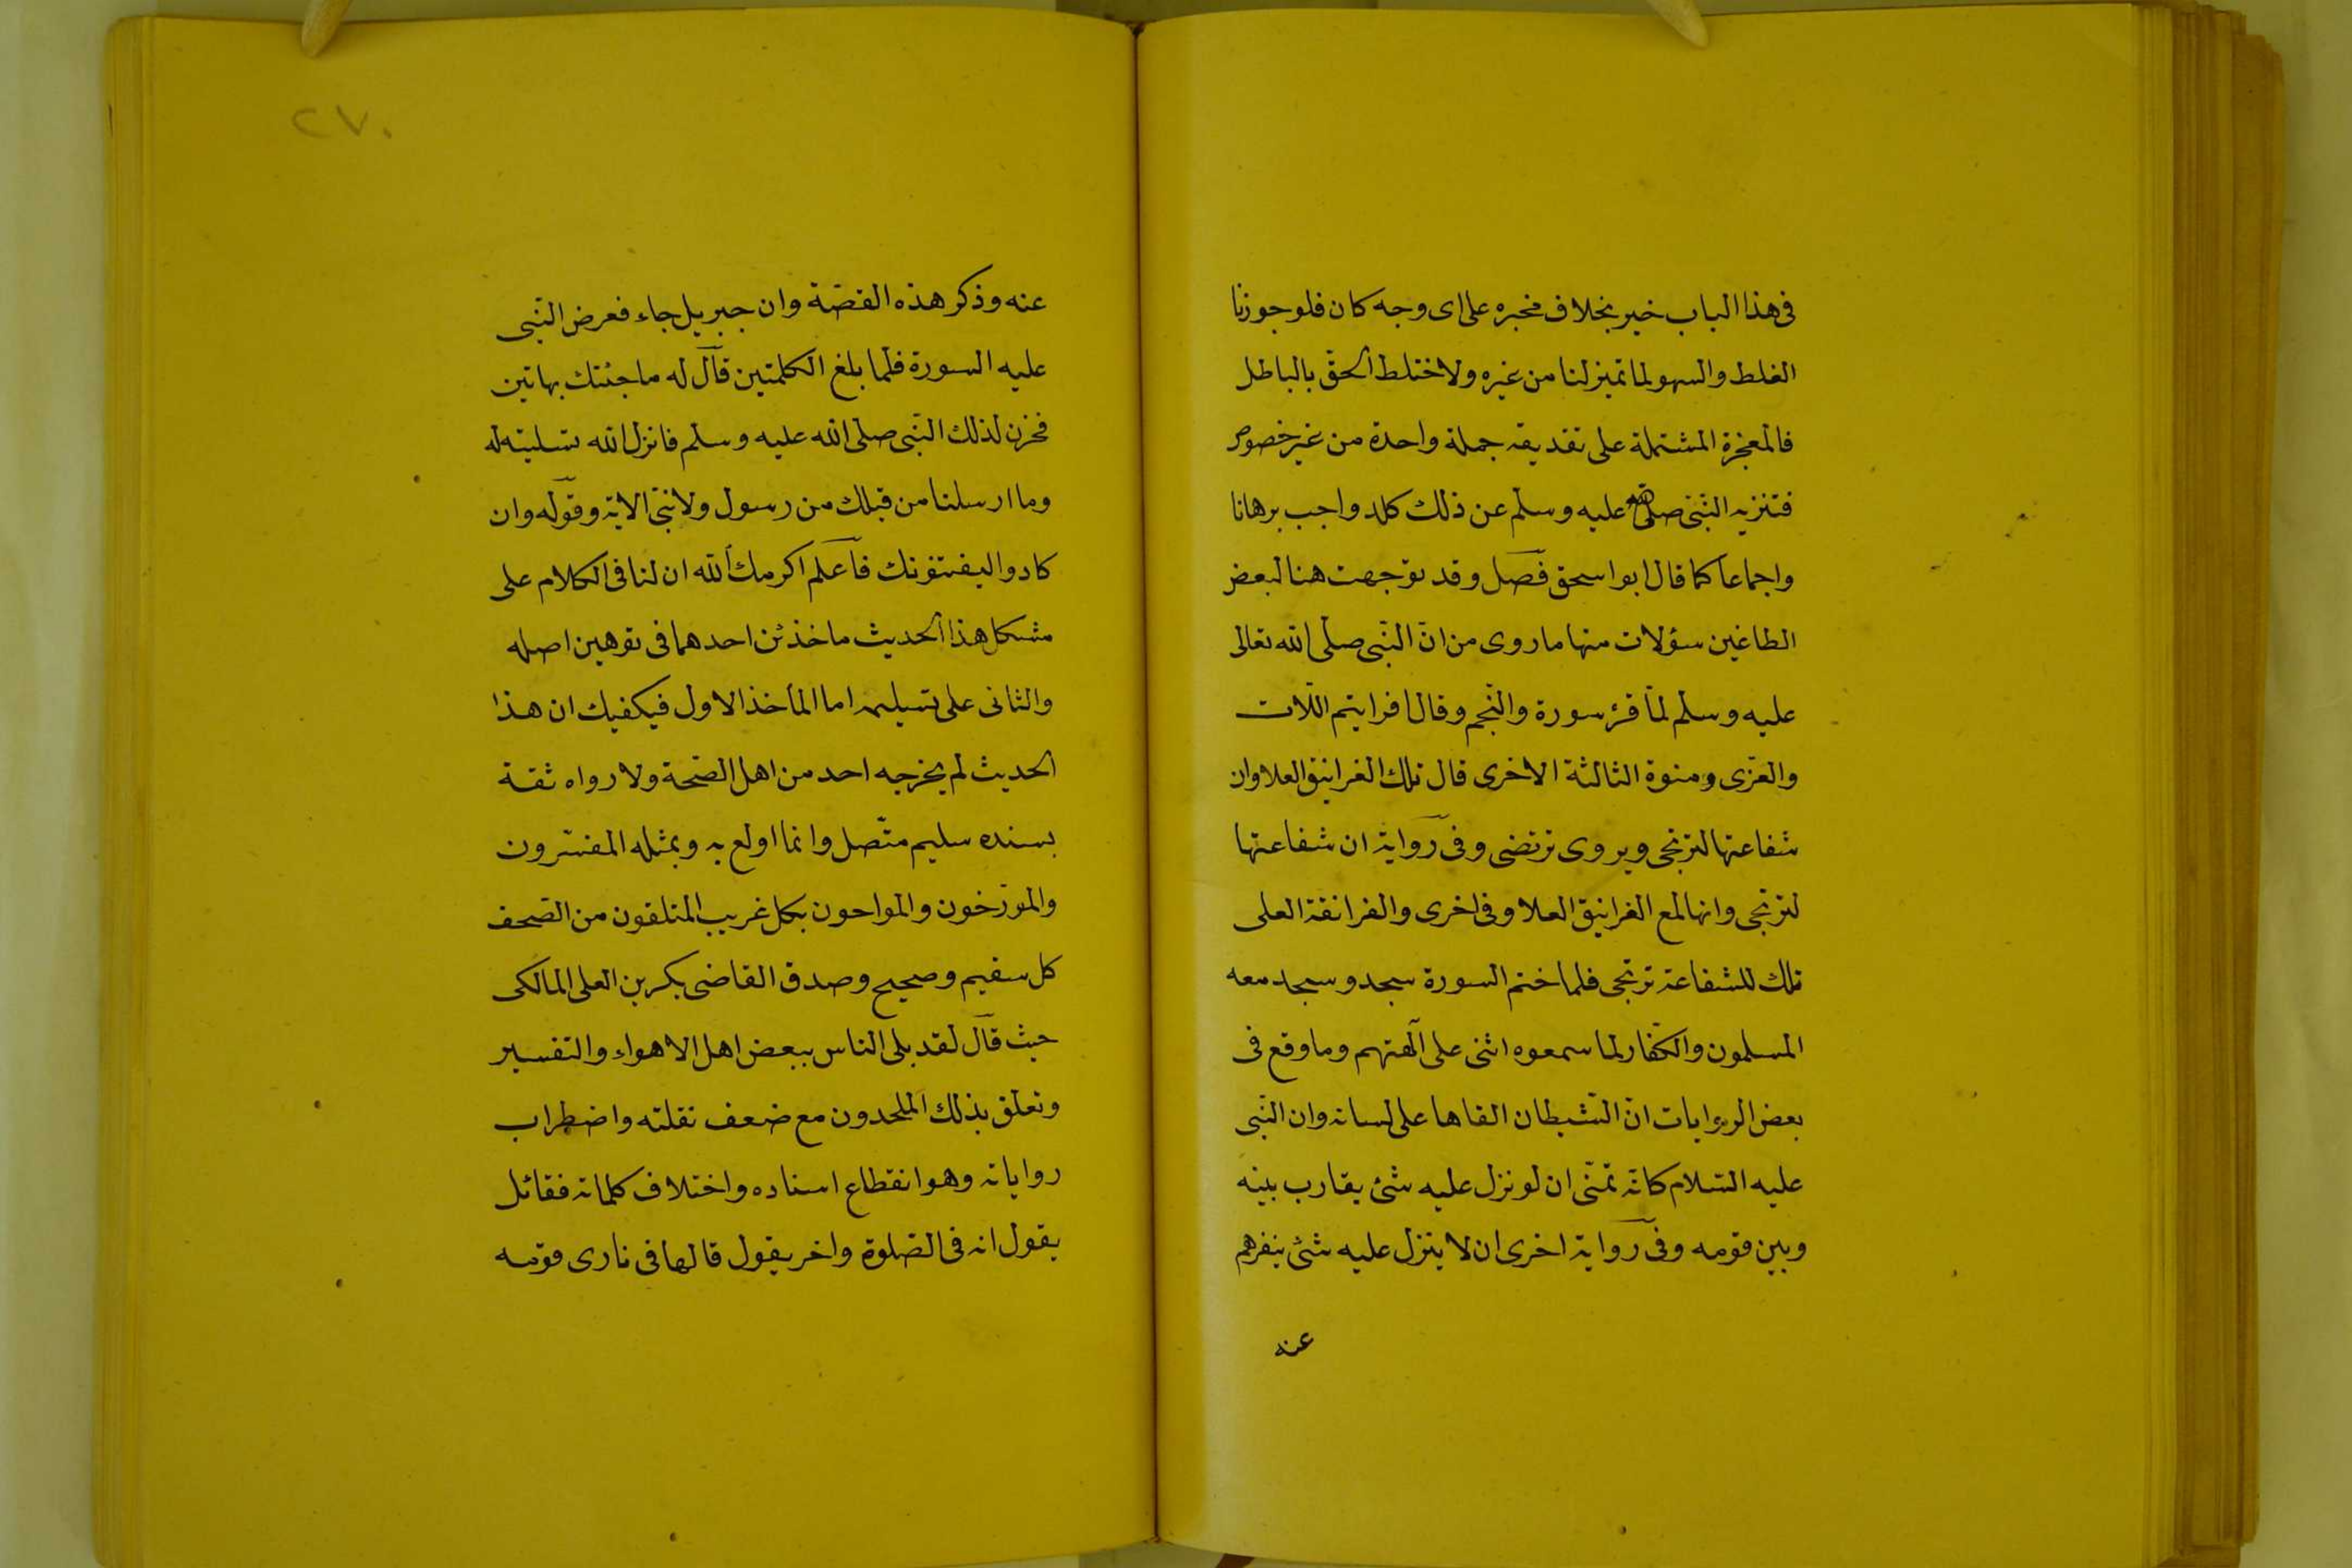 فى هذا الباب خير بخلاف مخبره على اى وجه كان فلو جوزنا
الغلط والسهو لما تميز لنا من غيره ولاختلط الحق بالباطل
فالمعجزة المشتملة على تقديقه جملة واحدة من غير خصوص
فتنزيه النبى صلى الله عليه وسلم عن ذلك كله واجب برهانا
واجماعا كما قال ابو اسحق فصل وقد توجهت هنا لبعض
الطاغين سؤلات منها ما روى من ان النبى صلى الله تعالى
عليه وسلم لما قرء سورة والنجم وقال افرايتم اللات
والعزى ومنوة الثالثة الاخرى قال تلك الغرانيق العلا وان
شفاعتها لترتجى ويروى ترتضى وفى رواية ان شفاعتها
لترتجى وانها لمع الغرانيق العلا وفى اخرى والغرانقة العلى
تلك للشفاعة ترتجى فلما ختم السورة سجد وسجد معه
المسلمون والكفار لما سمعوه اثنى على آلهتهم وما وقع فى
بعض الروايات ان الشيطان القاها على لسانه وان النبى
عليه السلام كانه تمنى ان لو نزل عليه شئ يقارب بينه
وبين قومه وفى رواية اخرى ان لا ينزل عليه شئ ينفرهم
عنه
٢٧٠
عنه وذكر هذه القصة وان جبريل جاء فعرض النبى
عليه السورة فلما بلغ الكلمتين قال له ما جئتك بهاتين
فحزن لذلك النبى صلى الله عليه وسلم فانزل الله تسليته له
وما ارسلنا من قبلك من رسول ولا نبى الاية وقوله وان
كادوا ليفتنونك فاعلم اكرمك الله ان لنا فى الكلام على
مشكل هذا الحديث ماخذين احدهما فى توهين اصله
والثانى على تسليمه اما المأخذ الاول فيكفيك ان هذا
الحديث لم يخرجه احد من اهل الصحة ولا رواه ثقة
بسنده سليم متصل وانما اولع به وبمثله المفسرون
والمورخون والمواحون بكل غريب المتلقون من الصحف
كل سقيم وصحيح وصدق القاضى بكر بن العلى المالكى
حيث قال لقد بلى الناس ببعض اهل الاهواء والتفسير
وتعلق بذلك الملحدون مع ضعف نقلته واضطراب
رواياته وهو انقطاع اسناده واختلاف كلماته فقائل
يقول انه فى الصلوة واخر يقول قالها فى نارى قومه